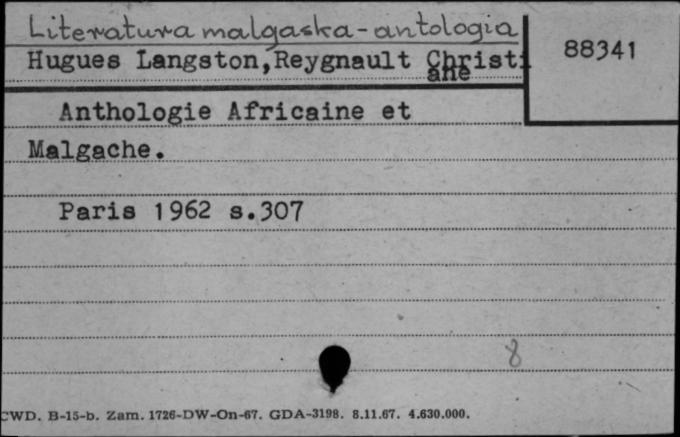 Literatura malgaska - antologia
88341
Hugues Langston,Reygnault Christi
ane
Anthologie Africaine et
Malgache.
Paris 1962 s.307
8
CWD. B-15-b. Zam. 1726-DW-On-67. GDA-3198. 8.11.67. 4.630.000.